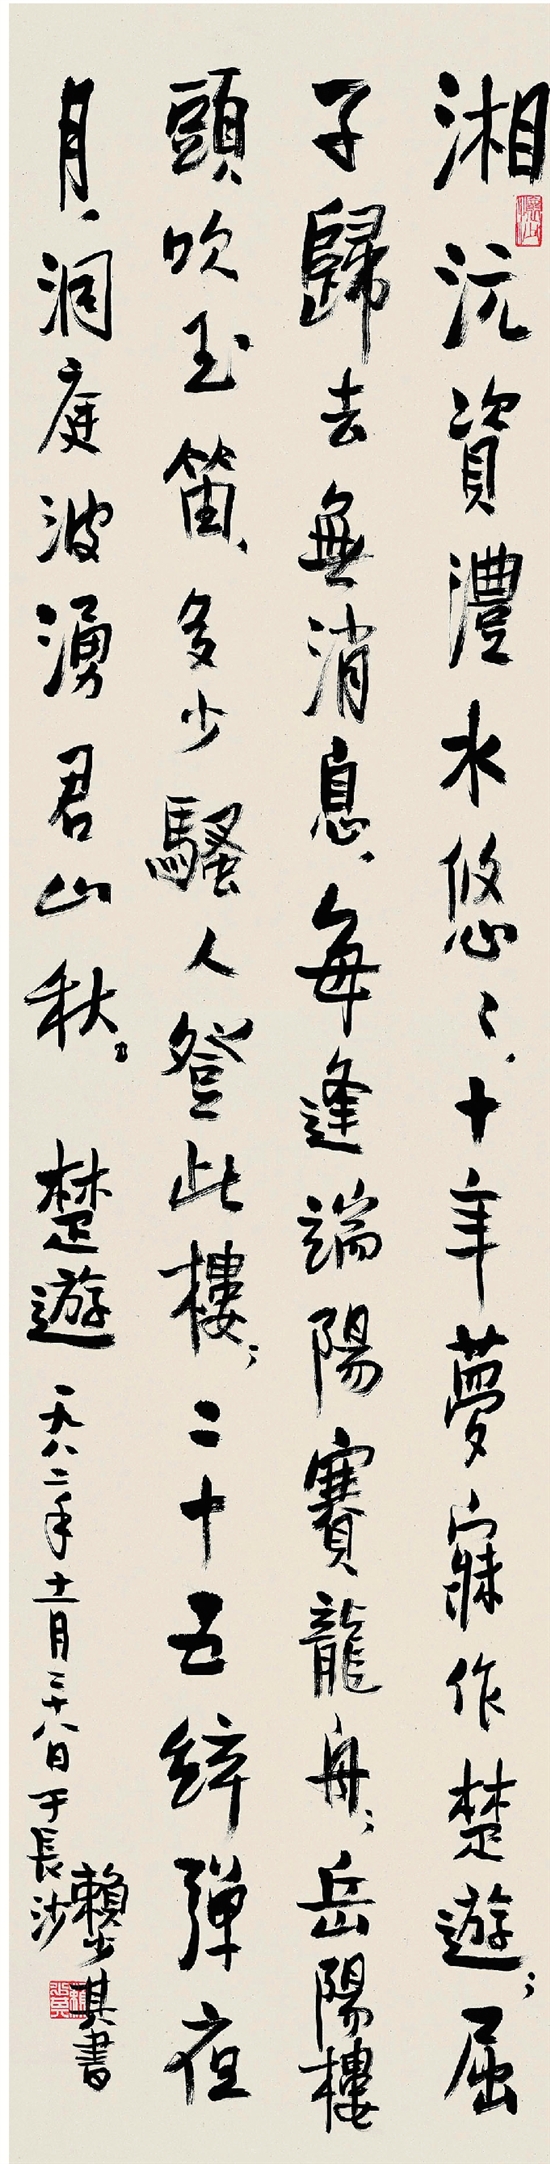 湘沅資澧水悠〻、十年夢寐作楚遊；屈
子歸去無消息、每逢端陽賽龍舟；岳陽樓
頭吹玉笛、多少騷人登此樓；二十五絃彈夜
月、洞庭波湧君山秋。楚遊 一九八二年十一月二十八日于長沙
賴少其書